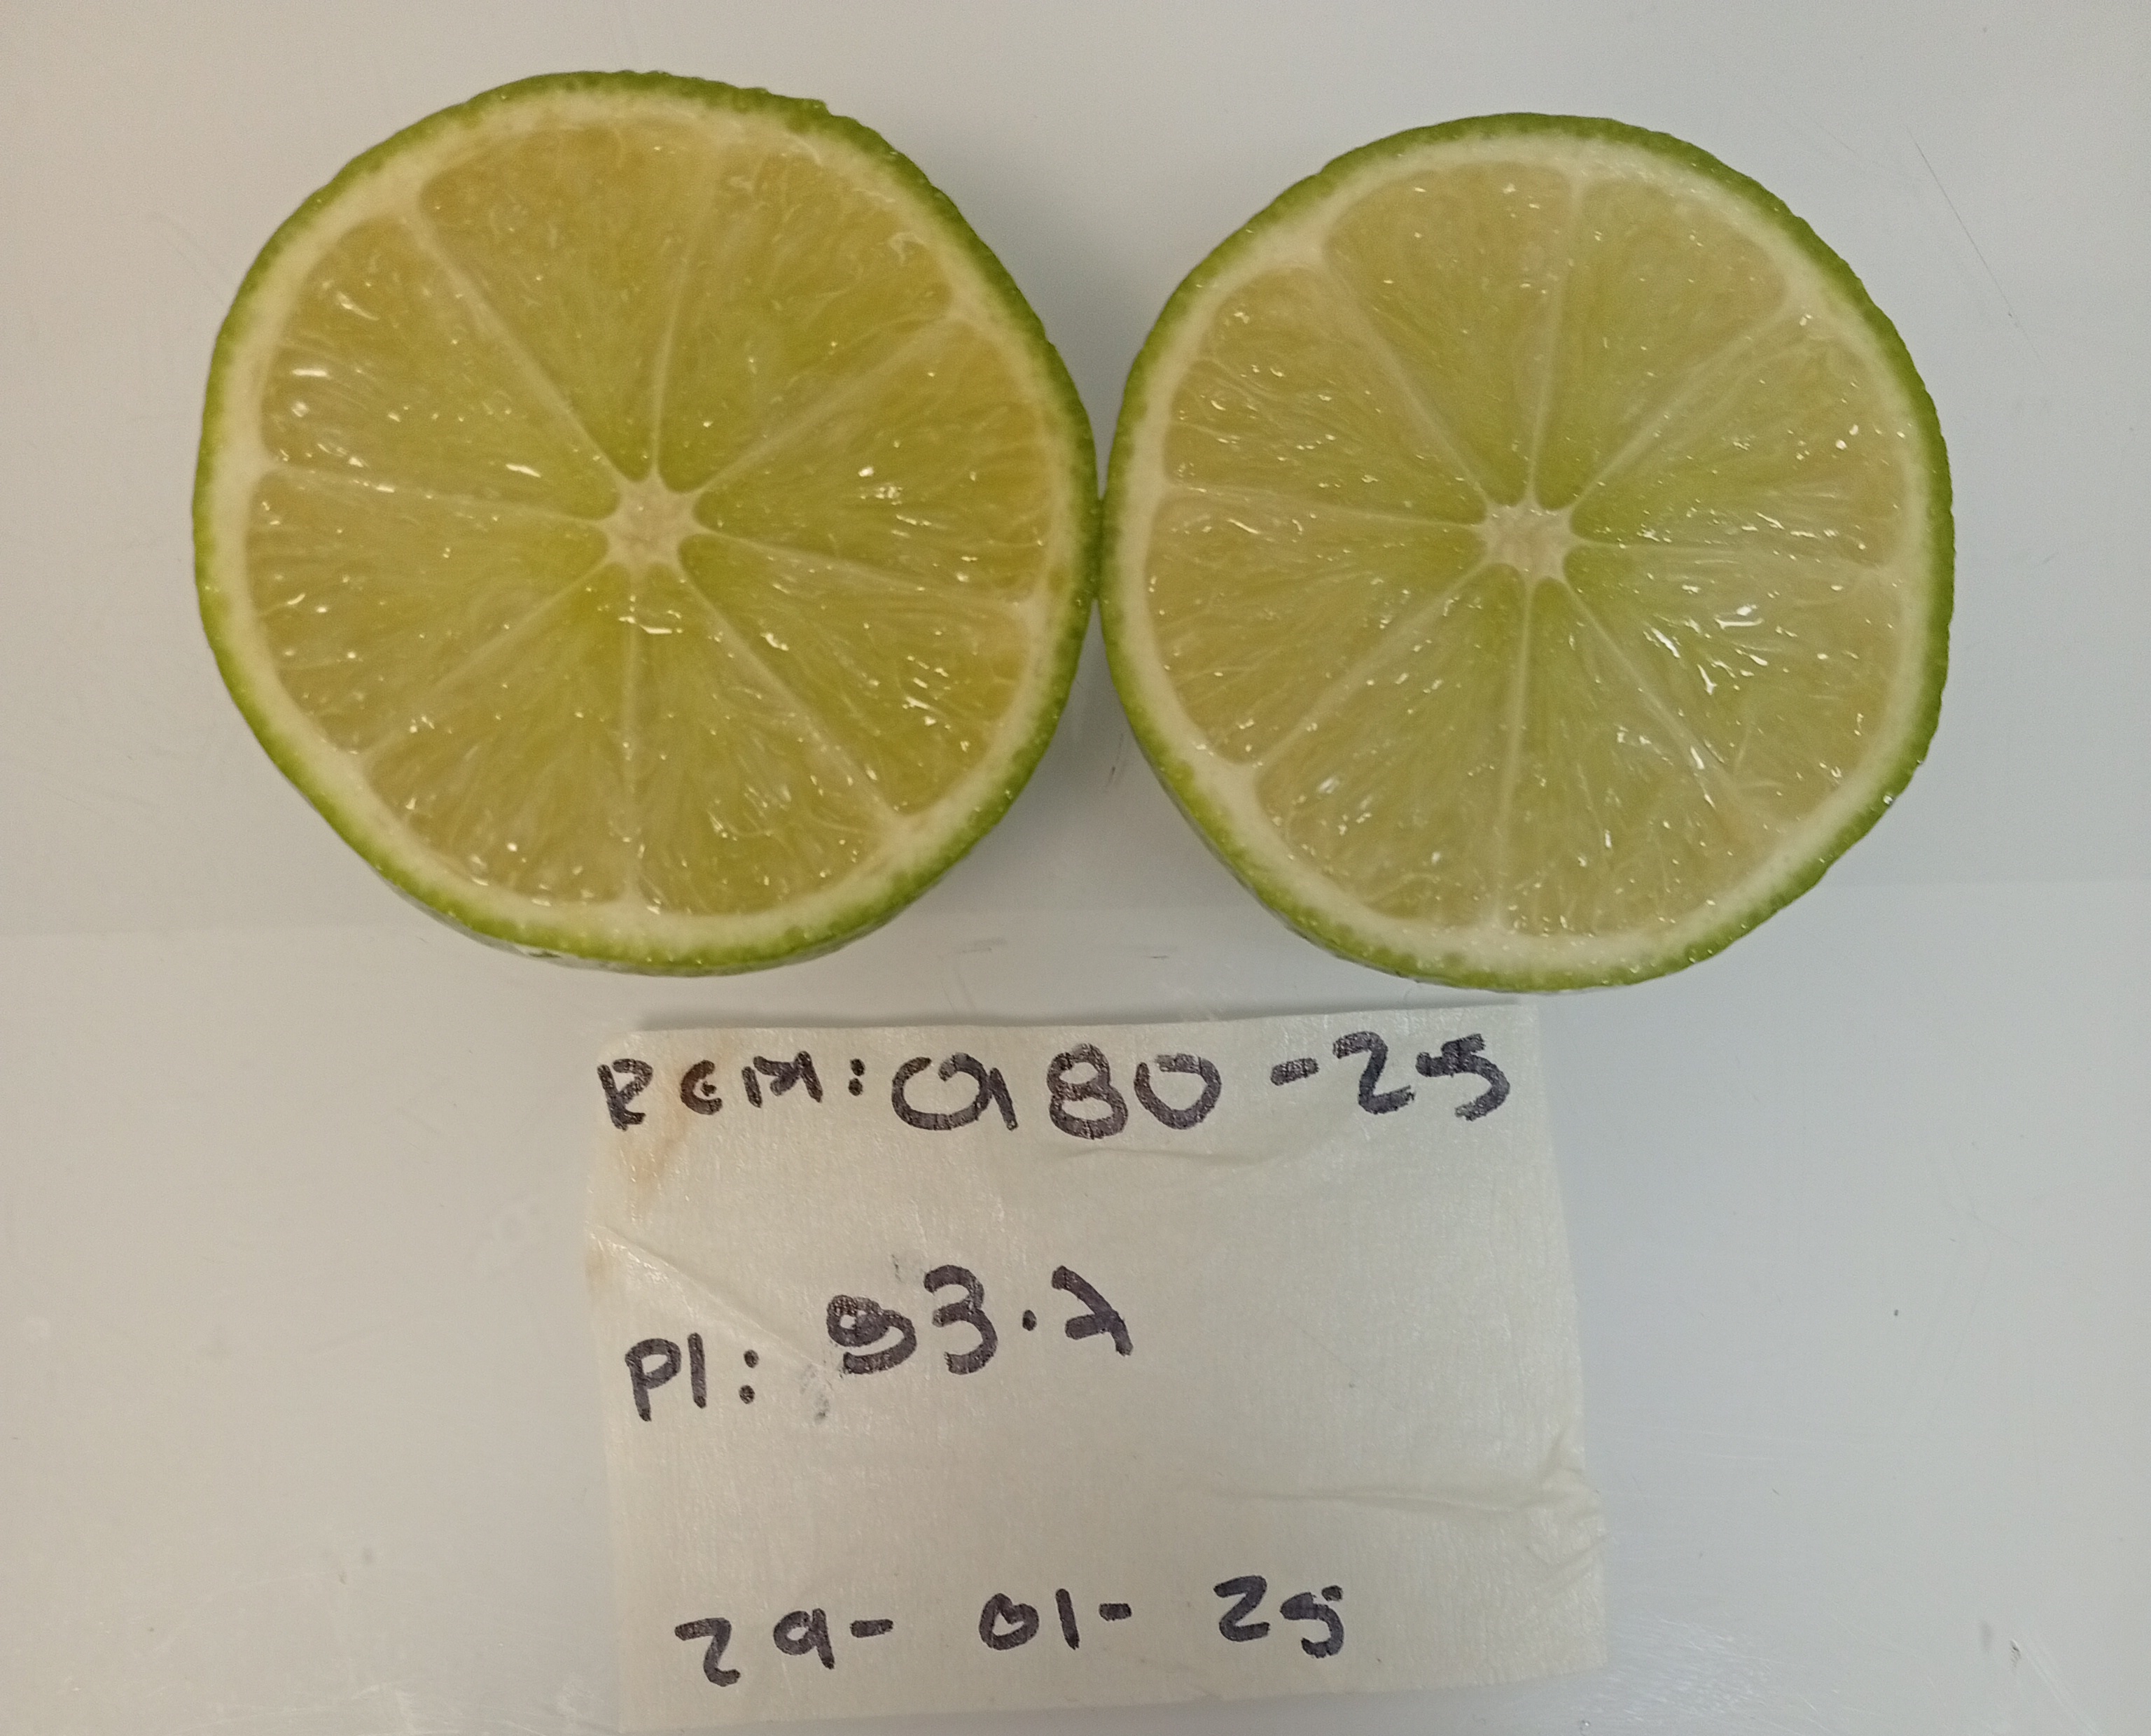 REM: 0180-25
PI:
29-01-25